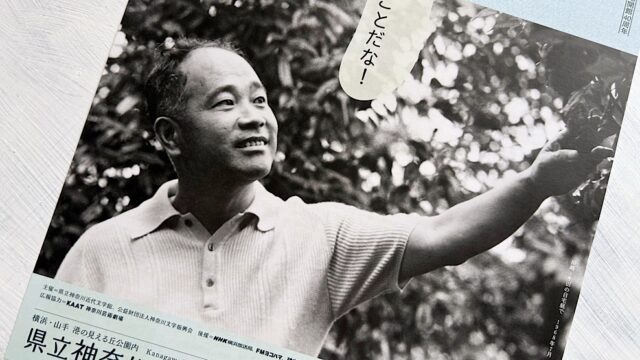 開館40周年
ことだな！
自宅前で、1968年7月
主催＝県立神奈川近代文学館、公益財団法人神奈川文学振興会　後援＝NHK横浜放送局、FMヨコハマ、
広報協力＝KAAT 神奈川芸術劇場
横浜・山手 港の見える丘公園内　Kanagawa
県立神奈